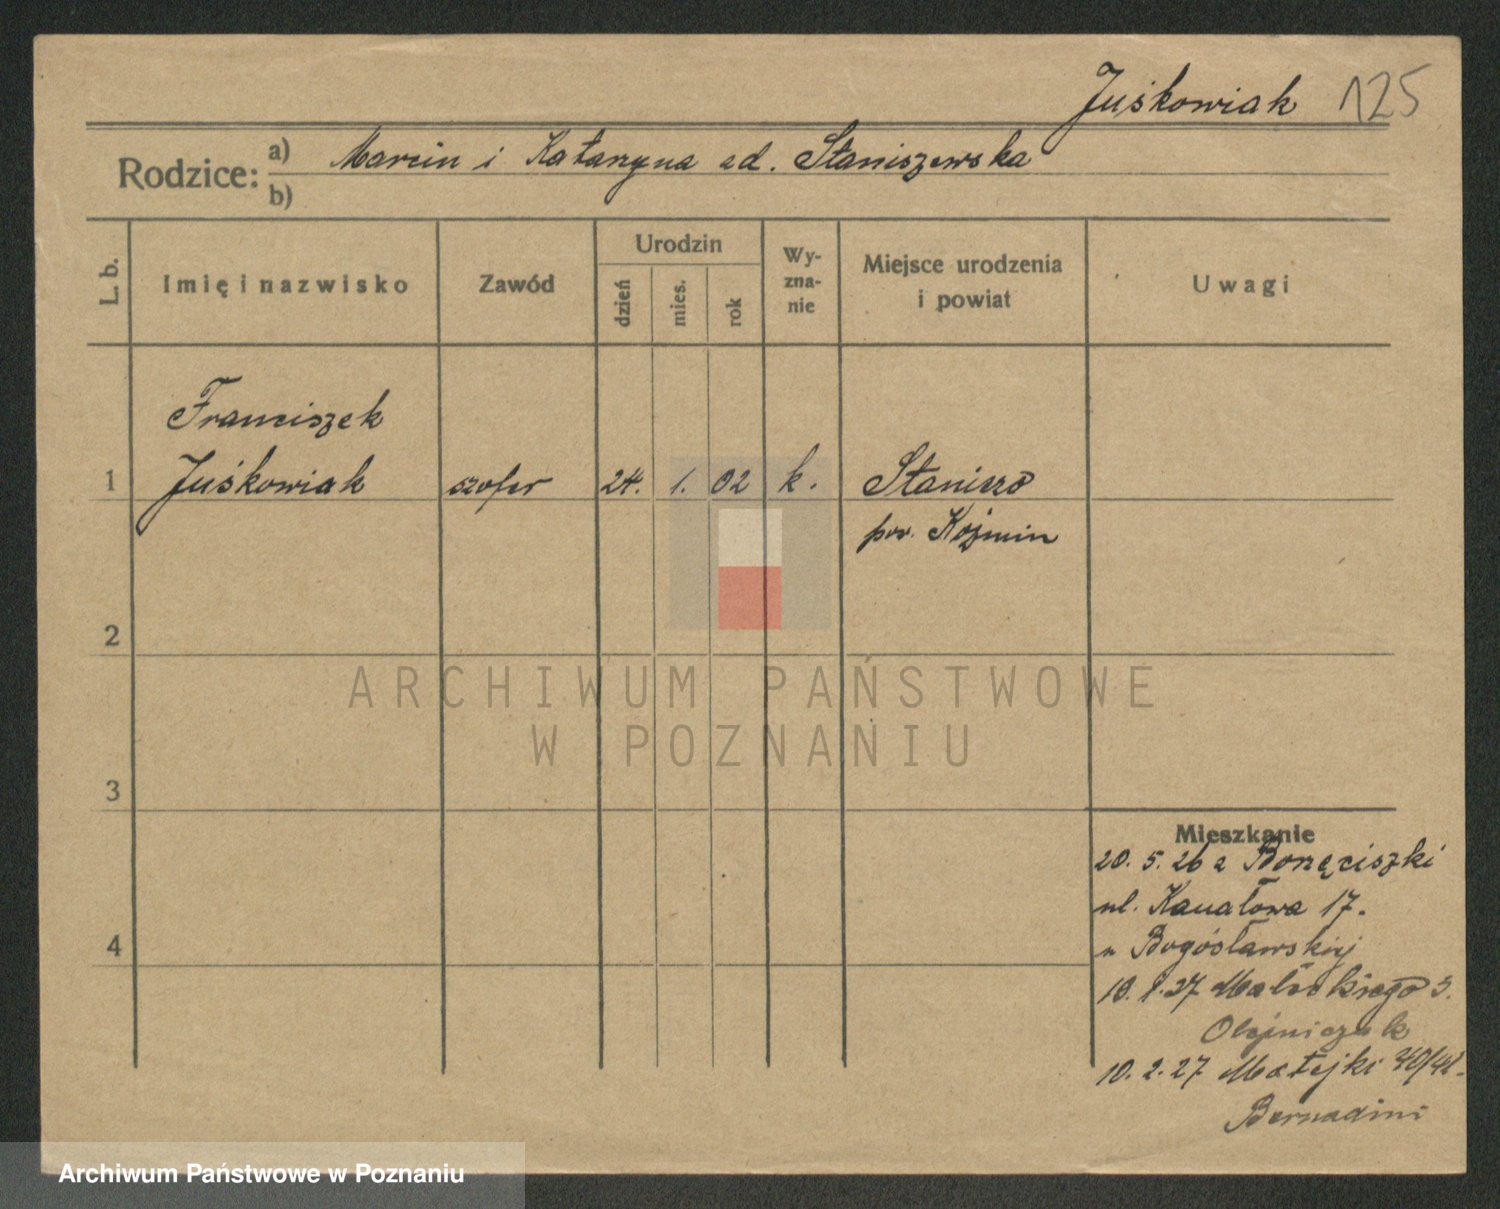 Juśkowiak 125
Rodzice: a) Marcin i Katarzyna zd. Staniszewska
b)
L. b. Imię i nazwisko Zawód Urodzin dzień mies. rok Wyznanie Miejsce urodzenia i powiat Uwagi
Franciszek
1 Juśkowiak szofer 24. 1. 02 k.
pow. Koźmin
2
ARCHIWUM PAŃSTWOWE
W POZNANIU
3
Mieszkanie
20. 5. 26 z Boręciszki
ul. Kanałowa 17.
4
u Bogósławskiej
Małeckiego 3.
Olejniczak
10. 2. 27 Matejki 40/41.
Bernadini
Archiwum Państwowe w Poznaniu